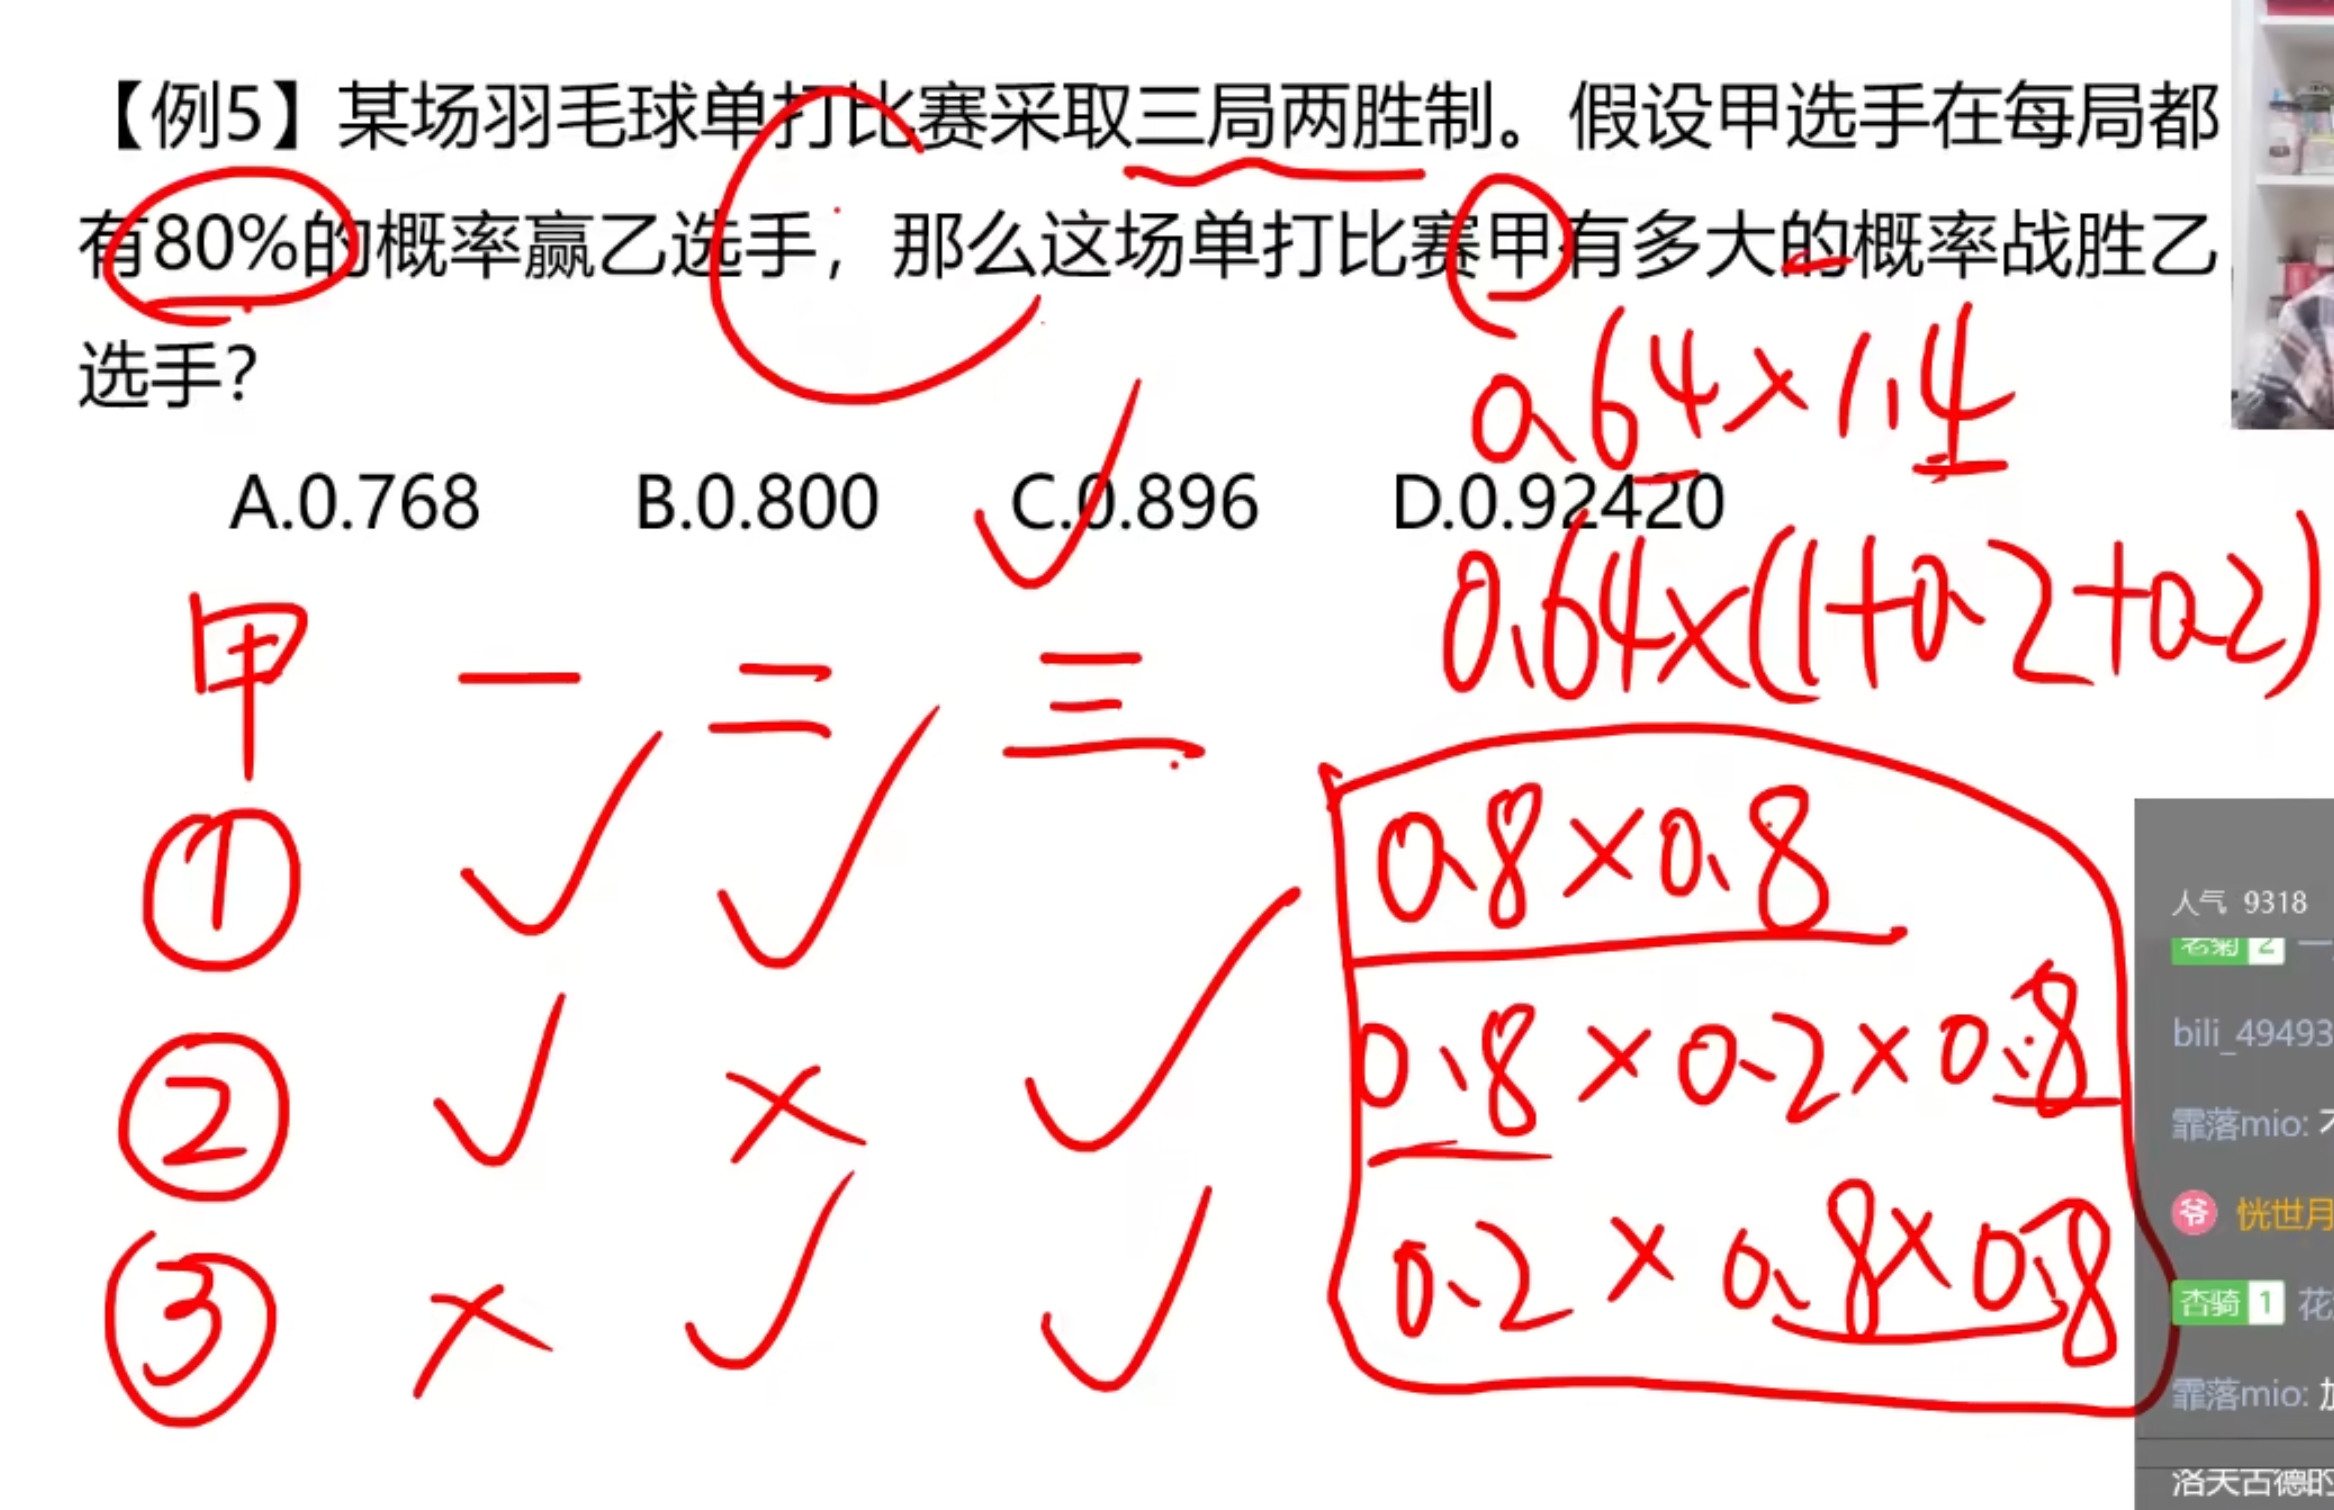 【例5】某场羽毛球单打比赛采取三局两胜制。假设甲选手在每局都
有80%的概率赢乙选手，那么这场单打比赛甲有多大的概率战胜乙
选手？
0.64×1.4
A.0.768 B.0.800 C.0.896 D.0.92420
0.64×(1+0.2+0.2)
甲 一 二 三
① ✓ ✓ 0.8×0.8
② ✓ × ✓ 0.8×0.2×0.8
③ × ✓ ✓ 0.2×0.8×0.8
人气 9318
老菊 2 一
bili_49493
霏落mio: 不
爷 恍世月
杏骑 1 花
霏落mio: 加
洛天古德的